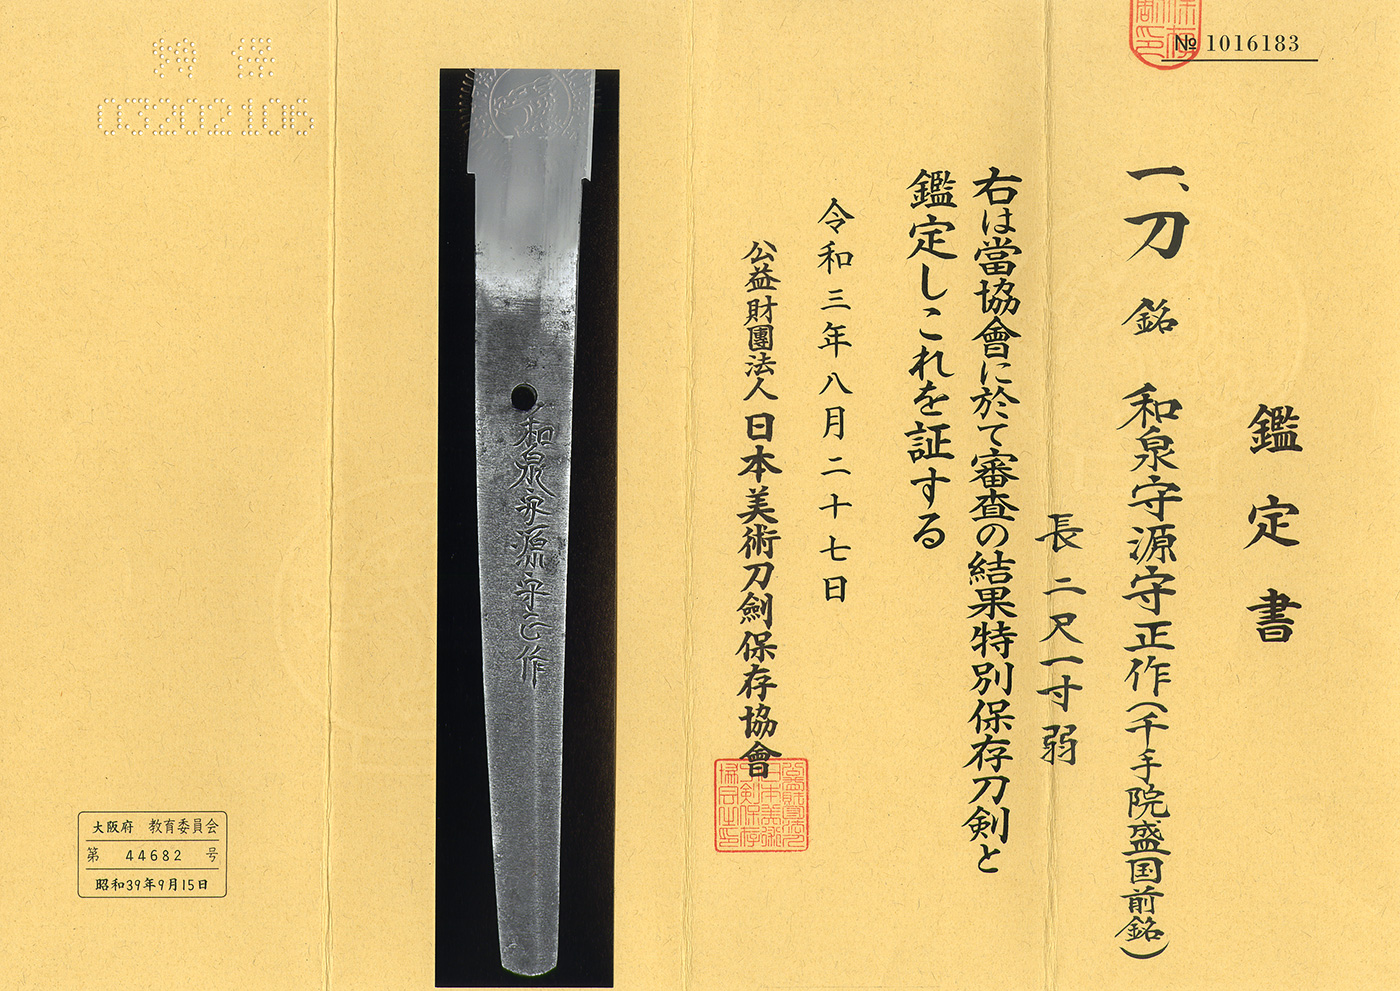 № 1016183
鑑定書
一、刀 銘 和泉守源守正作(千手院盛国前銘)
長二尺一寸弱
右は當協會に於て審査の結果特別保存刀剣と
鑑定しこれを証する
令和三年八月二十七日
公益財團法人日本美術刀劍保存協會
和泉守源守正作
03202106
大阪府 教育委員会
第 44682 号
昭和39年9月15日